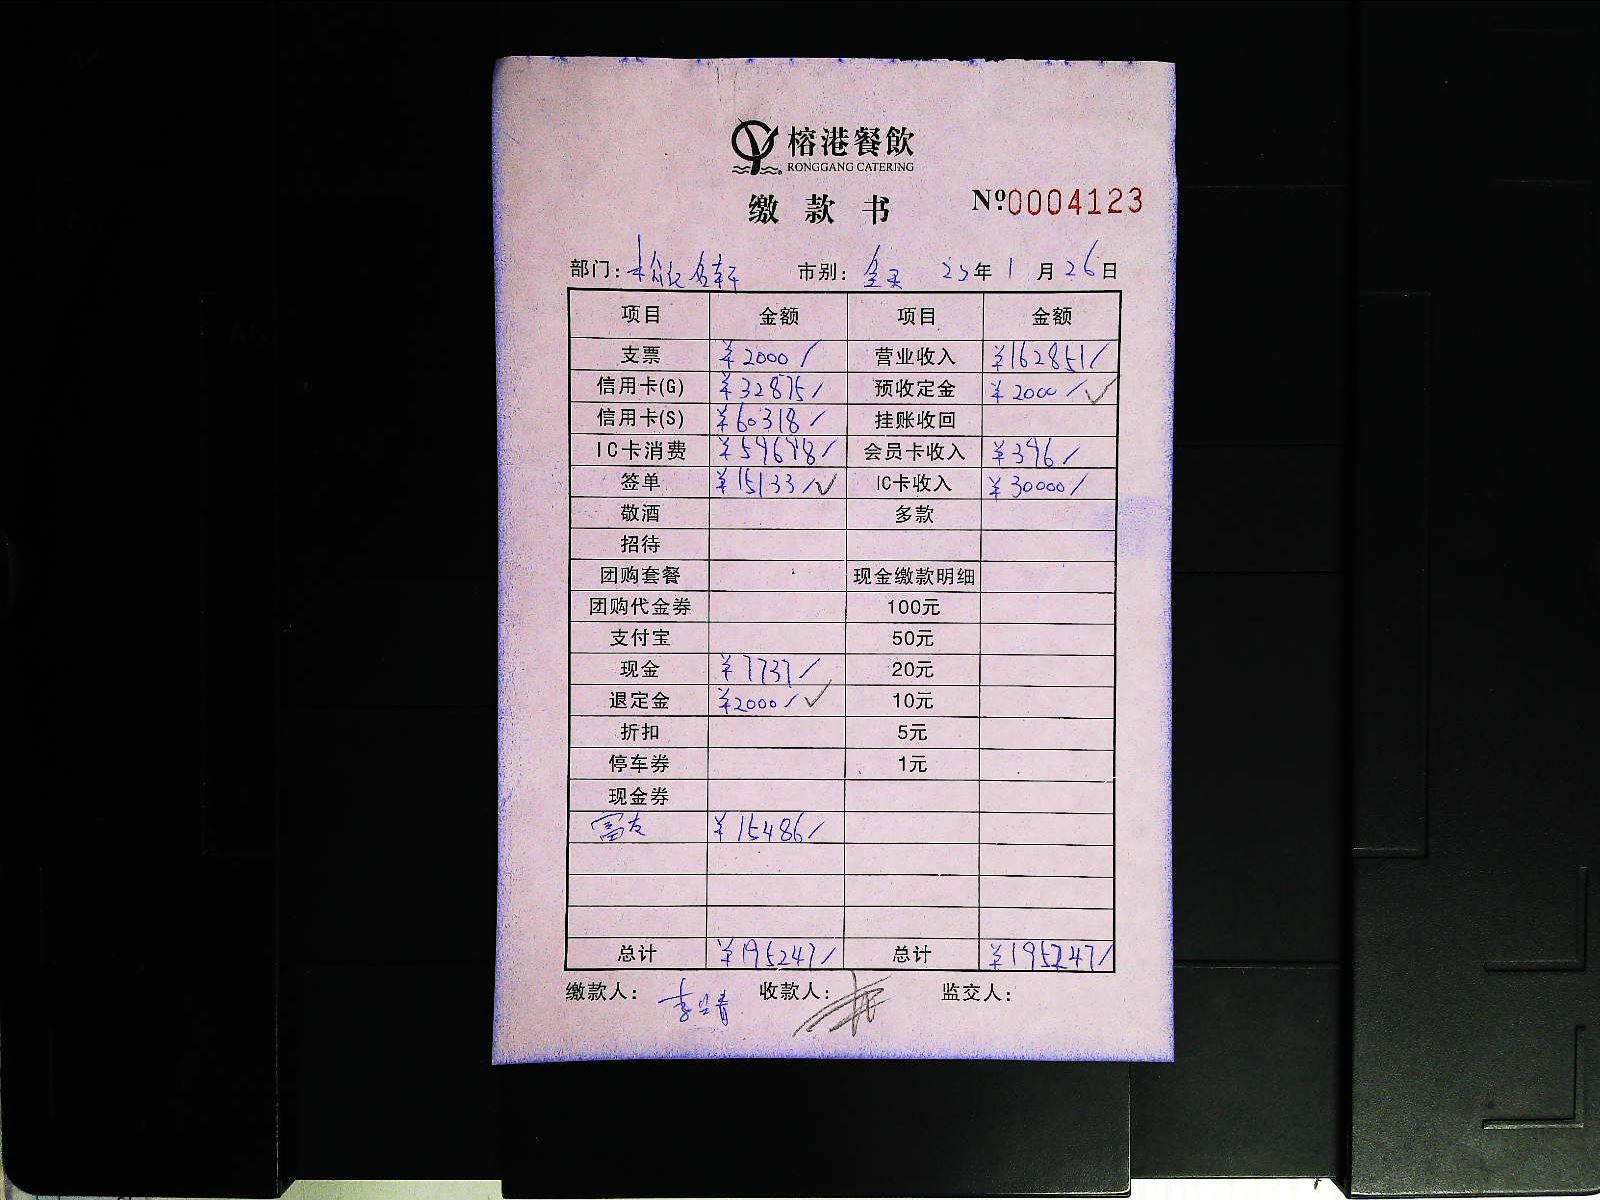 榕港餐飲
RONGGANG CATERING
缴款书 Nº0004123
部门: 名轩 市别: 全天 23年1月26日
项目 金额 项目 金额
支票 ¥2000/ 营业收入 ¥162851/
信用卡(G) ¥32875/ 预收定金 ¥2000/✓
信用卡(S) ¥60318/ 挂账收回
IC卡消费 ¥59698/ 会员卡收入 ¥396/
签单 ¥15133/✓ IC卡收入 ¥30000/
敬酒 多款
招待
团购套餐 现金缴款明细
团购代金券 100元
支付宝 50元
现金 ¥7737/ 20元
退定金 ¥2000/✓ 10元
折扣 5元
停车券 1元
现金券
富友 ¥15486/
总计 ¥195247/ 总计 ¥195247/
缴款人: 收款人: 监交人: